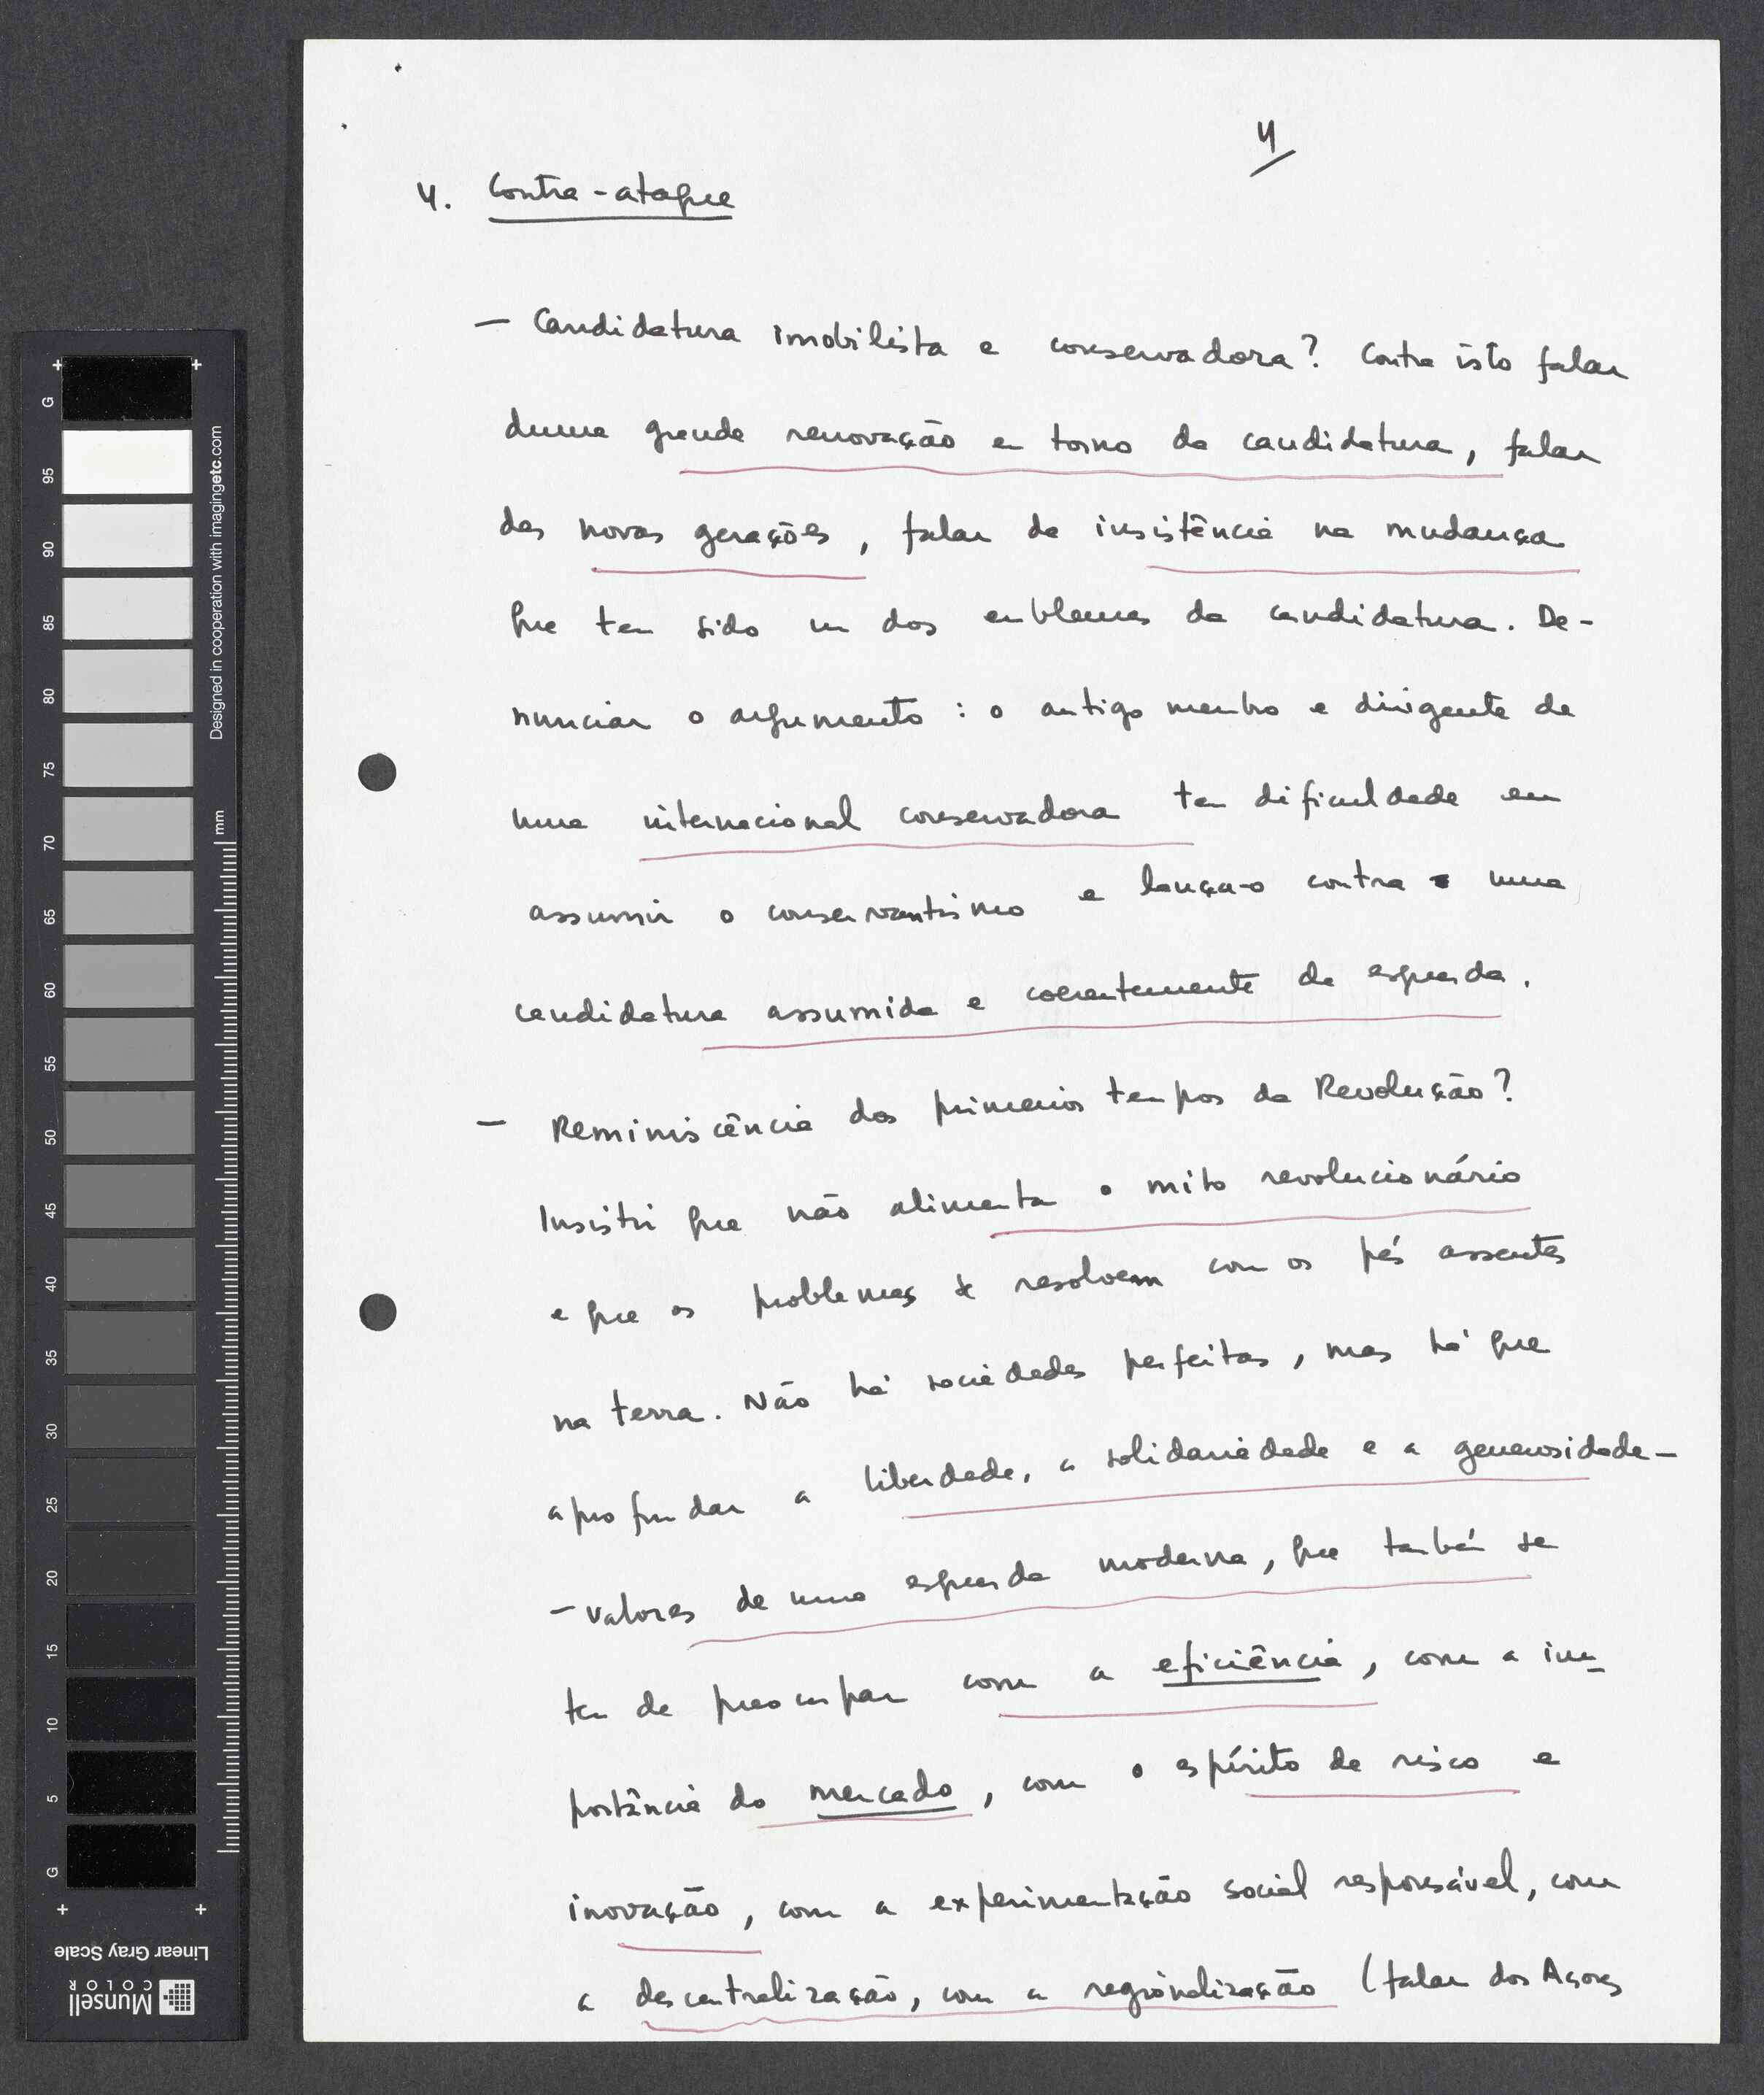 4
4. Contra-ataque
— Candidatura imobilista e conservadora? Contra isto falar
duma grande renovação em torno da candidatura, falar
das novas gerações, falar da insistência na mudança
que tem sido um dos emblemas da candidatura. De-
nunciar o argumento: o antigo membro e dirigente de
uma internacional conservadora tem dificuldade em
assumir o conservantismo e lança-o contra uma
candidatura assumida e coerentemente de esquerda.
— Reminiscência dos primeiros tempos da Revolução?
Insistir que não alimenta o mito revolucionário
e que os problemas se resolvem com os pés assentes
na terra. Não há sociedades perfeitas, mas há que
aprofundar a liberdade, a solidariedade e a generosidade —
— valores de uma esquerda moderna, que também se
tem de preocupar com a eficiência, com a im-
portância do mercado, com o espírito de risco e
inovação, com a experimentação social responsável, com
a descentralização, com a regionalização (falar dos Açores
G
95
90
85
80
75
70
65
60
55
50
45
40
35
30
25
20
15
10
5
G
mm
Designed in cooperation with imagingetc.com
Linear Gray Scale
Munsell
COLOR